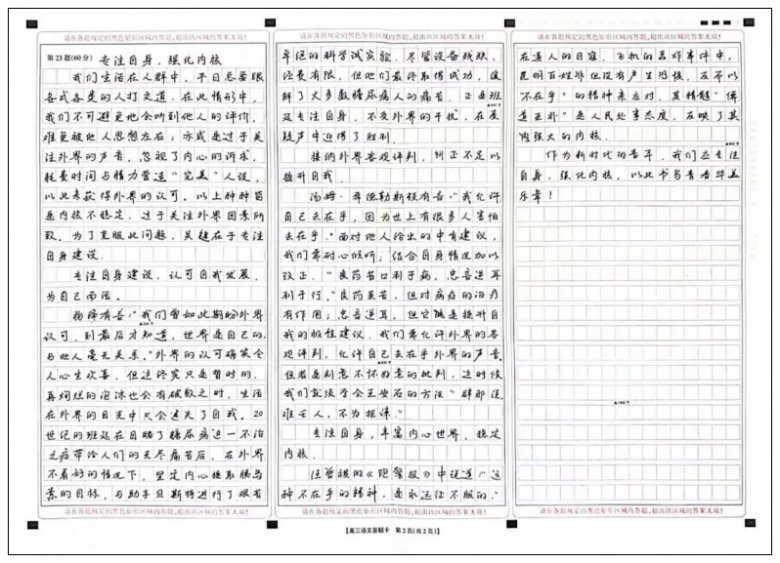 请在各题规定的黑色矩形区域内答题,超出该区域的答案无效!
第23题(60分) 专注自身,强化内核
我们生活在人群中,平日总要跟
各式各样的人打交道,在此情形中,
我们不可避免地会听到他人的评价,
难免被他人思想左右;亦或是过于关
注外界的声音,忽视了内心的诉求,
耗费时间与精力营造“完美”人设,
以此来获得外界的认可。以上种种皆
是内核不稳定,过于关注外界因素所
致。为了克服此问题,关键在于专注
自身建设。
专注自身建设,认可自我发展,
为自己而活。
杨绛有言:“我们曾如此期盼外界
认可,到最后才知道,世界是自己的,
与他人毫无关系。”外界的认可确实令
人心生欢喜,但这终究只是暂时的,
再绚烂的泡沫也会有破散之时,生活
在外界的目光中只会迷失了自我。20
世纪的班廷在目睹了糖尿病这一不治
之症带给人们的无尽痛苦后,在外界
不看好的情况下,坚定内心提取胰岛
素的目标,与助手贝斯特进行了艰苦
请在各题规定的黑色矩形区域内答题,超出该区域的答案无效!
请在各题规定的黑色矩形区域内答题,超出该区域的答案无效!
卓绝的科学试实验,尽管设备残缺、
经费有限,但他们最终取得成功,缓
解了大多数糖尿病人的痛苦。正是班
廷专注自身,不受外界的干扰,在质
疑声中迎得了胜利。
接纳外界客观评判,纠正不足以
提升自我。
汤姆·希德勒斯顿有言:“我允许
自己去在乎,因为世上有很多人害怕
去在乎。”面对他人给出的中肯建议,
我们需耐心倾听,结合自身情况加以
改正。“良药苦口利于病,忠言逆耳
利于行。”良药虽苦,但对病症的治疗
有作用;忠言逆耳,但它能是提升自
我的极佳建议。我们需允许外界的客
观评判,允许自己去在乎外界的声音。
但若是刻意不怀好意的批判,这时候
我们就须学会王安石的方法“辟邪说,
难壬人,不为拒谏。”
专注自身,丰富内心世界,稳定
内核。
汪曾祺的《跑警报》中说道:“这
种不在乎的精神,是永远征不服的。”
请在各题规定的黑色矩形区域内答题,超出该区域的答案无效!
【高三语文答题卡 第2页(共2页)】
请在各题规定的黑色矩形区域内答题,超出该区域的答案无效!
在道人的日寇,飞机的轰炸事件中,
昆明百姓非但没有产生恐惧,反而以
“不在乎”的精神来应对,其精髓“儒
道互补”是人民处事态度,反映了其
内强大的内核。
作为新时代的青年,我们应专注
自身,强化内核,以此书写青春华美
乐章!
请在各题规定的黑色矩形区域内答题,超出该区域的答案无效!